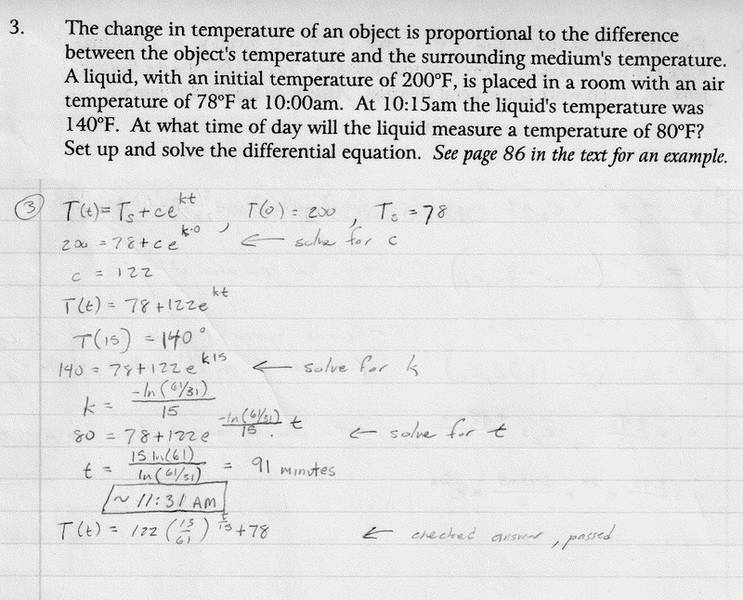 3. The change in temperature of an object is proportional to the difference
between the object's temperature and the surrounding medium's temperature.
A liquid, with an initial temperature of 200°F, is placed in a room with an air
temperature of 78°F at 10:00am. At 10:15am the liquid's temperature was
140°F. At what time of day will the liquid measure a temperature of 80°F?
Set up and solve the differential equation. See page 86 in the text for an example.
③ T(t)= Ts+ce^kt , T(0)= 200 , Ts =78
200 =78+ce^k·0 ← solve for c
c = 122
T(t) = 78+122e^kt
T(15) =140°
140 = 78+122e^k15 ← solve for k
k = -ln(61/31)/15
80 = 78+122e^-ln(61/31)/15 · t ← solve for t
t = 15 ln(61)/ln(61/31) = 91 minutes
~ 11:31 AM
T(t) = 122 (13/61)^t/15 +78 ← checked answer, passed